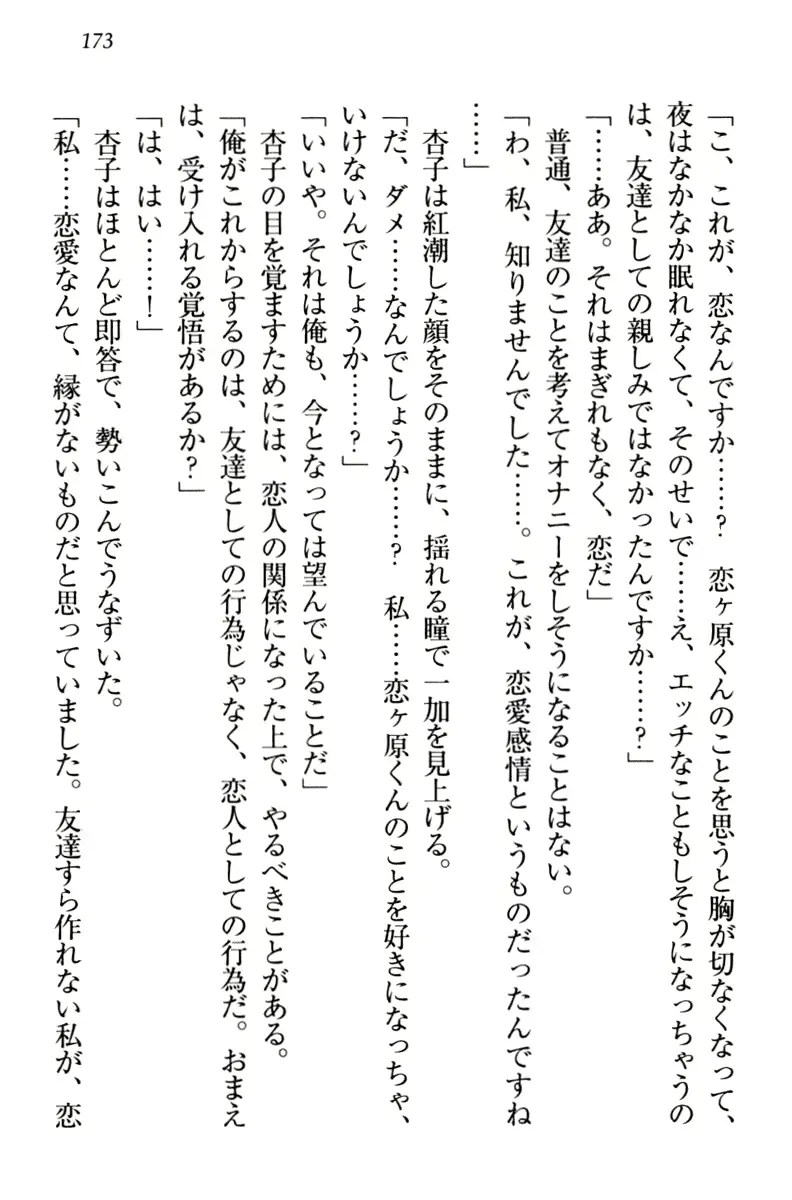 173
「こ、これが、恋なんですか……？　恋ヶ原くんのことを思うと胸が切なくなって、
夜はなかなか眠れなくて、そのせいで……え、エッチなこともしそうになっちゃうの
は、友達としての親しみではなかったんですか……？」
「……ああ。それはまぎれもなく、恋だ」
　普通、友達のことを考えてオナニーをしそうになることはない。
「わ、私、知りませんでした……。これが、恋愛感情というものだったんですね
……」
　杏子は紅潮した顔をそのままに、揺れる瞳で一加を見上げる。
「だ、ダメ……なんでしょうか……？　私……恋ヶ原くんのことを好きになっちゃ、
いけないんでしょうか……？」
「いいや。それは俺も、今となっては望んでいることだ」
　杏子の目を覚ますためには、恋人の関係になった上で、やるべきことがある。
「俺がこれからするのは、友達としての行為じゃなく、恋人としての行為だ。おまえ
は、受け入れる覚悟があるか？」
「は、はい……！」
　杏子はほとんど即答で、勢いこんでうなずいた。
「私……恋愛なんて、縁がないものだと思っていました。友達すら作れない私が、恋